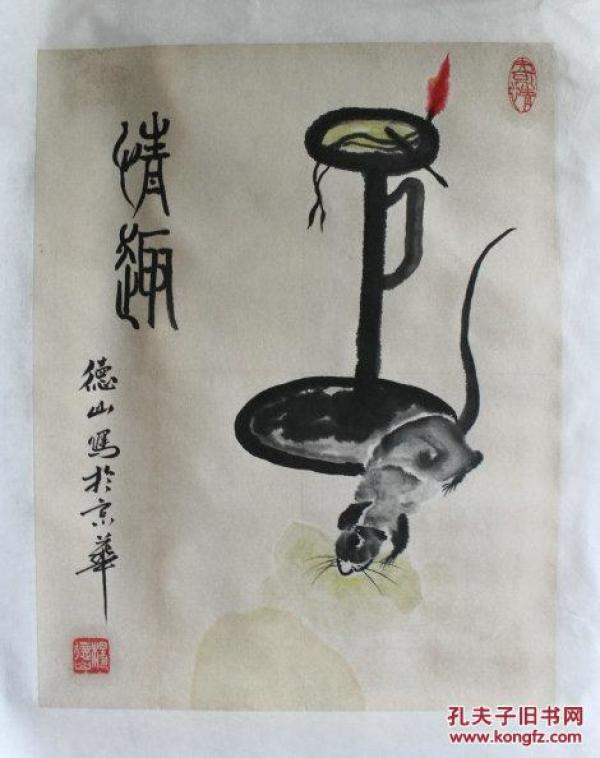 情趣
德山寫於京華
孔夫子旧书网
www.kongfz.com